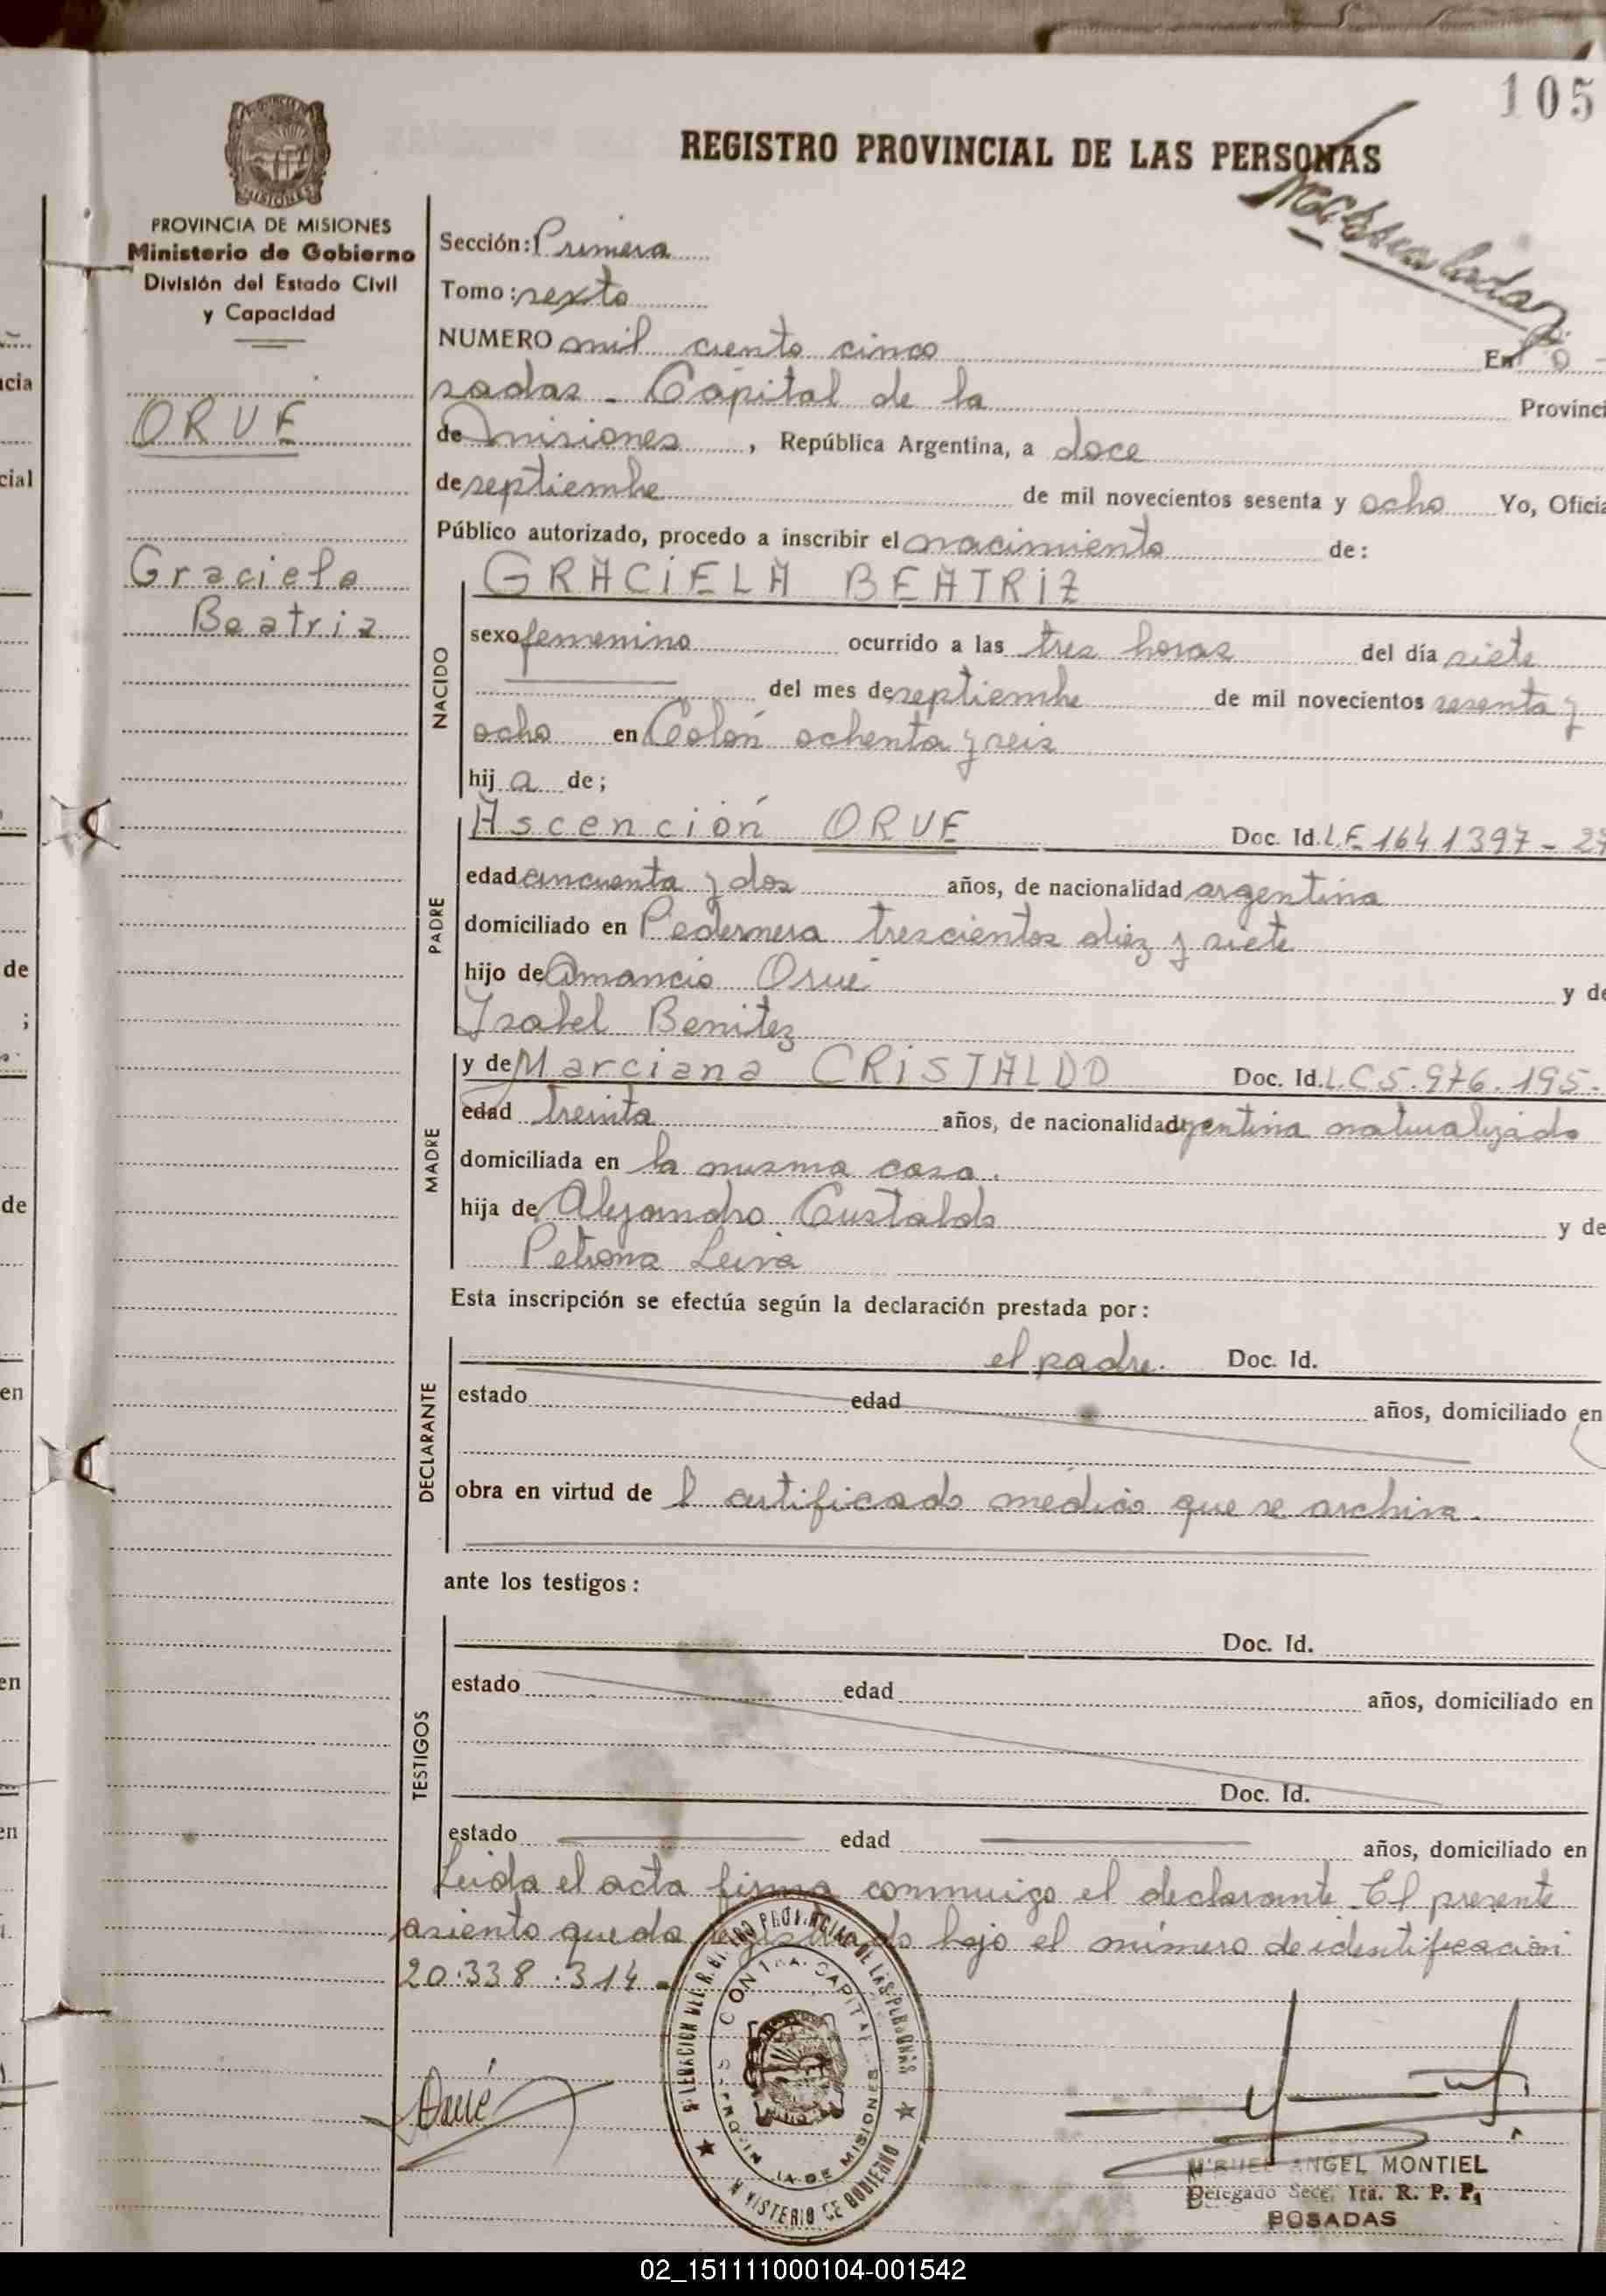 105
REGISTRO PROVINCIAL DE LAS PERSONAS
PROVINCIA DE MISIONES
Ministerio de Gobierno
División del Estado Civil
y Capacidad
ORUE
Graciela
Beatriz
Sección: Primera
Tomo: sexto
NUMERO mil ciento cinco En Po
sadas - Capital de la Provinci
de misiones, República Argentina, a doce
de septiembre de mil novecientos sesenta y ocho Yo, Oficia
Público autorizado, procedo a inscribir el nacimiento de:
GRACIELA BEATRIZ
NACIDO
sexo femenino ocurrido a las tres horas del día siete
del mes de septiembre de mil novecientos sesenta y
ocho en Colón ochenta y seis
hija de;
PADRE
Ascención ORUE Doc. Id. L.E 1641397 - 27
edad cincuenta y dos años, de nacionalidad argentina
domiciliado en Pedernera trescientos diez y siete
hijo de Amancio Orué y de
Isabel Benitez
MADRE
y de Marciana CRISTALDO Doc. Id. L.C 5.976.195-
edad treinta años, de nacionalidad argentina naturalizada
domiciliada en la misma casa.
hija de Alejandro Cristaldo y de
Petrona Leiva
Esta inscripción se efectúa según la declaración prestada por:
DECLARANTE
el padre. Doc. Id.
estado edad años, domiciliado en
obra en virtud de l certificado médico que se archiva.
ante los testigos:
TESTIGOS
Doc. Id.
estado edad años, domiciliado en
Doc. Id.
estado edad años, domiciliado en
Leida el acta firma conmuigo el declarante. El presente
asiento queda registrado bajo el número de identificación
20.338.314-
Orué
MINISTERIO DE GOBIERNO
MIGUEL ANGEL MONTIEL
Delegado Secc. 1ra. R. P. P.
POSADAS
02_151111000104-001542